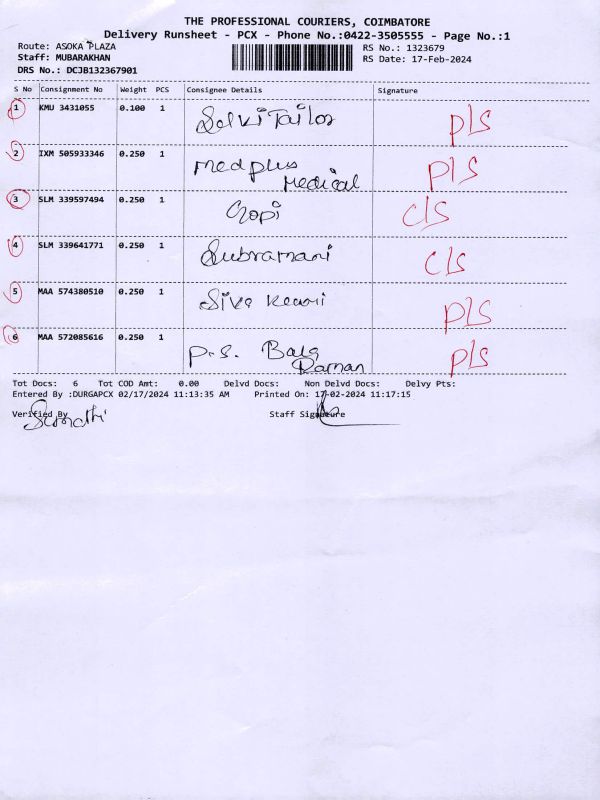 THE PROFESSIONAL COURIERS, COIMBATORE
Delivery Runsheet - PCX - Phone No.:0422-3505555 - Page No.:1
Route: ASOKA PLAZA RS No.: 1323679
Staff: MUBARAKHAN RS Date: 17-Feb-2024
DRS No.: DCJB132367901
S No Consignment No Weight PCS Consignee Details Signature
1 KMU 3431055 0.100 1 Selvi Tailor P/S
2 IXM 505933346 0.250 1 medplus Medical P/S
3 SLM 339597494 0.250 1 Gopi C/S
4 SLM 339641771 0.250 1 Subramani C/S
5 MAA 574380510 0.250 1 Siva P/S
6 MAA 572085616 0.250 1 P.S. Bala Raman P/S
Tot Docs: 6 Tot COD Amt: 0.00 Delvd Docs: Non Delvd Docs: Delvy Pts:
Entered By :DURGAPCX 02/17/2024 11:13:35 AM Printed On: 17-02-2024 11:17:15
Verified By Staff Signature
Sumathi